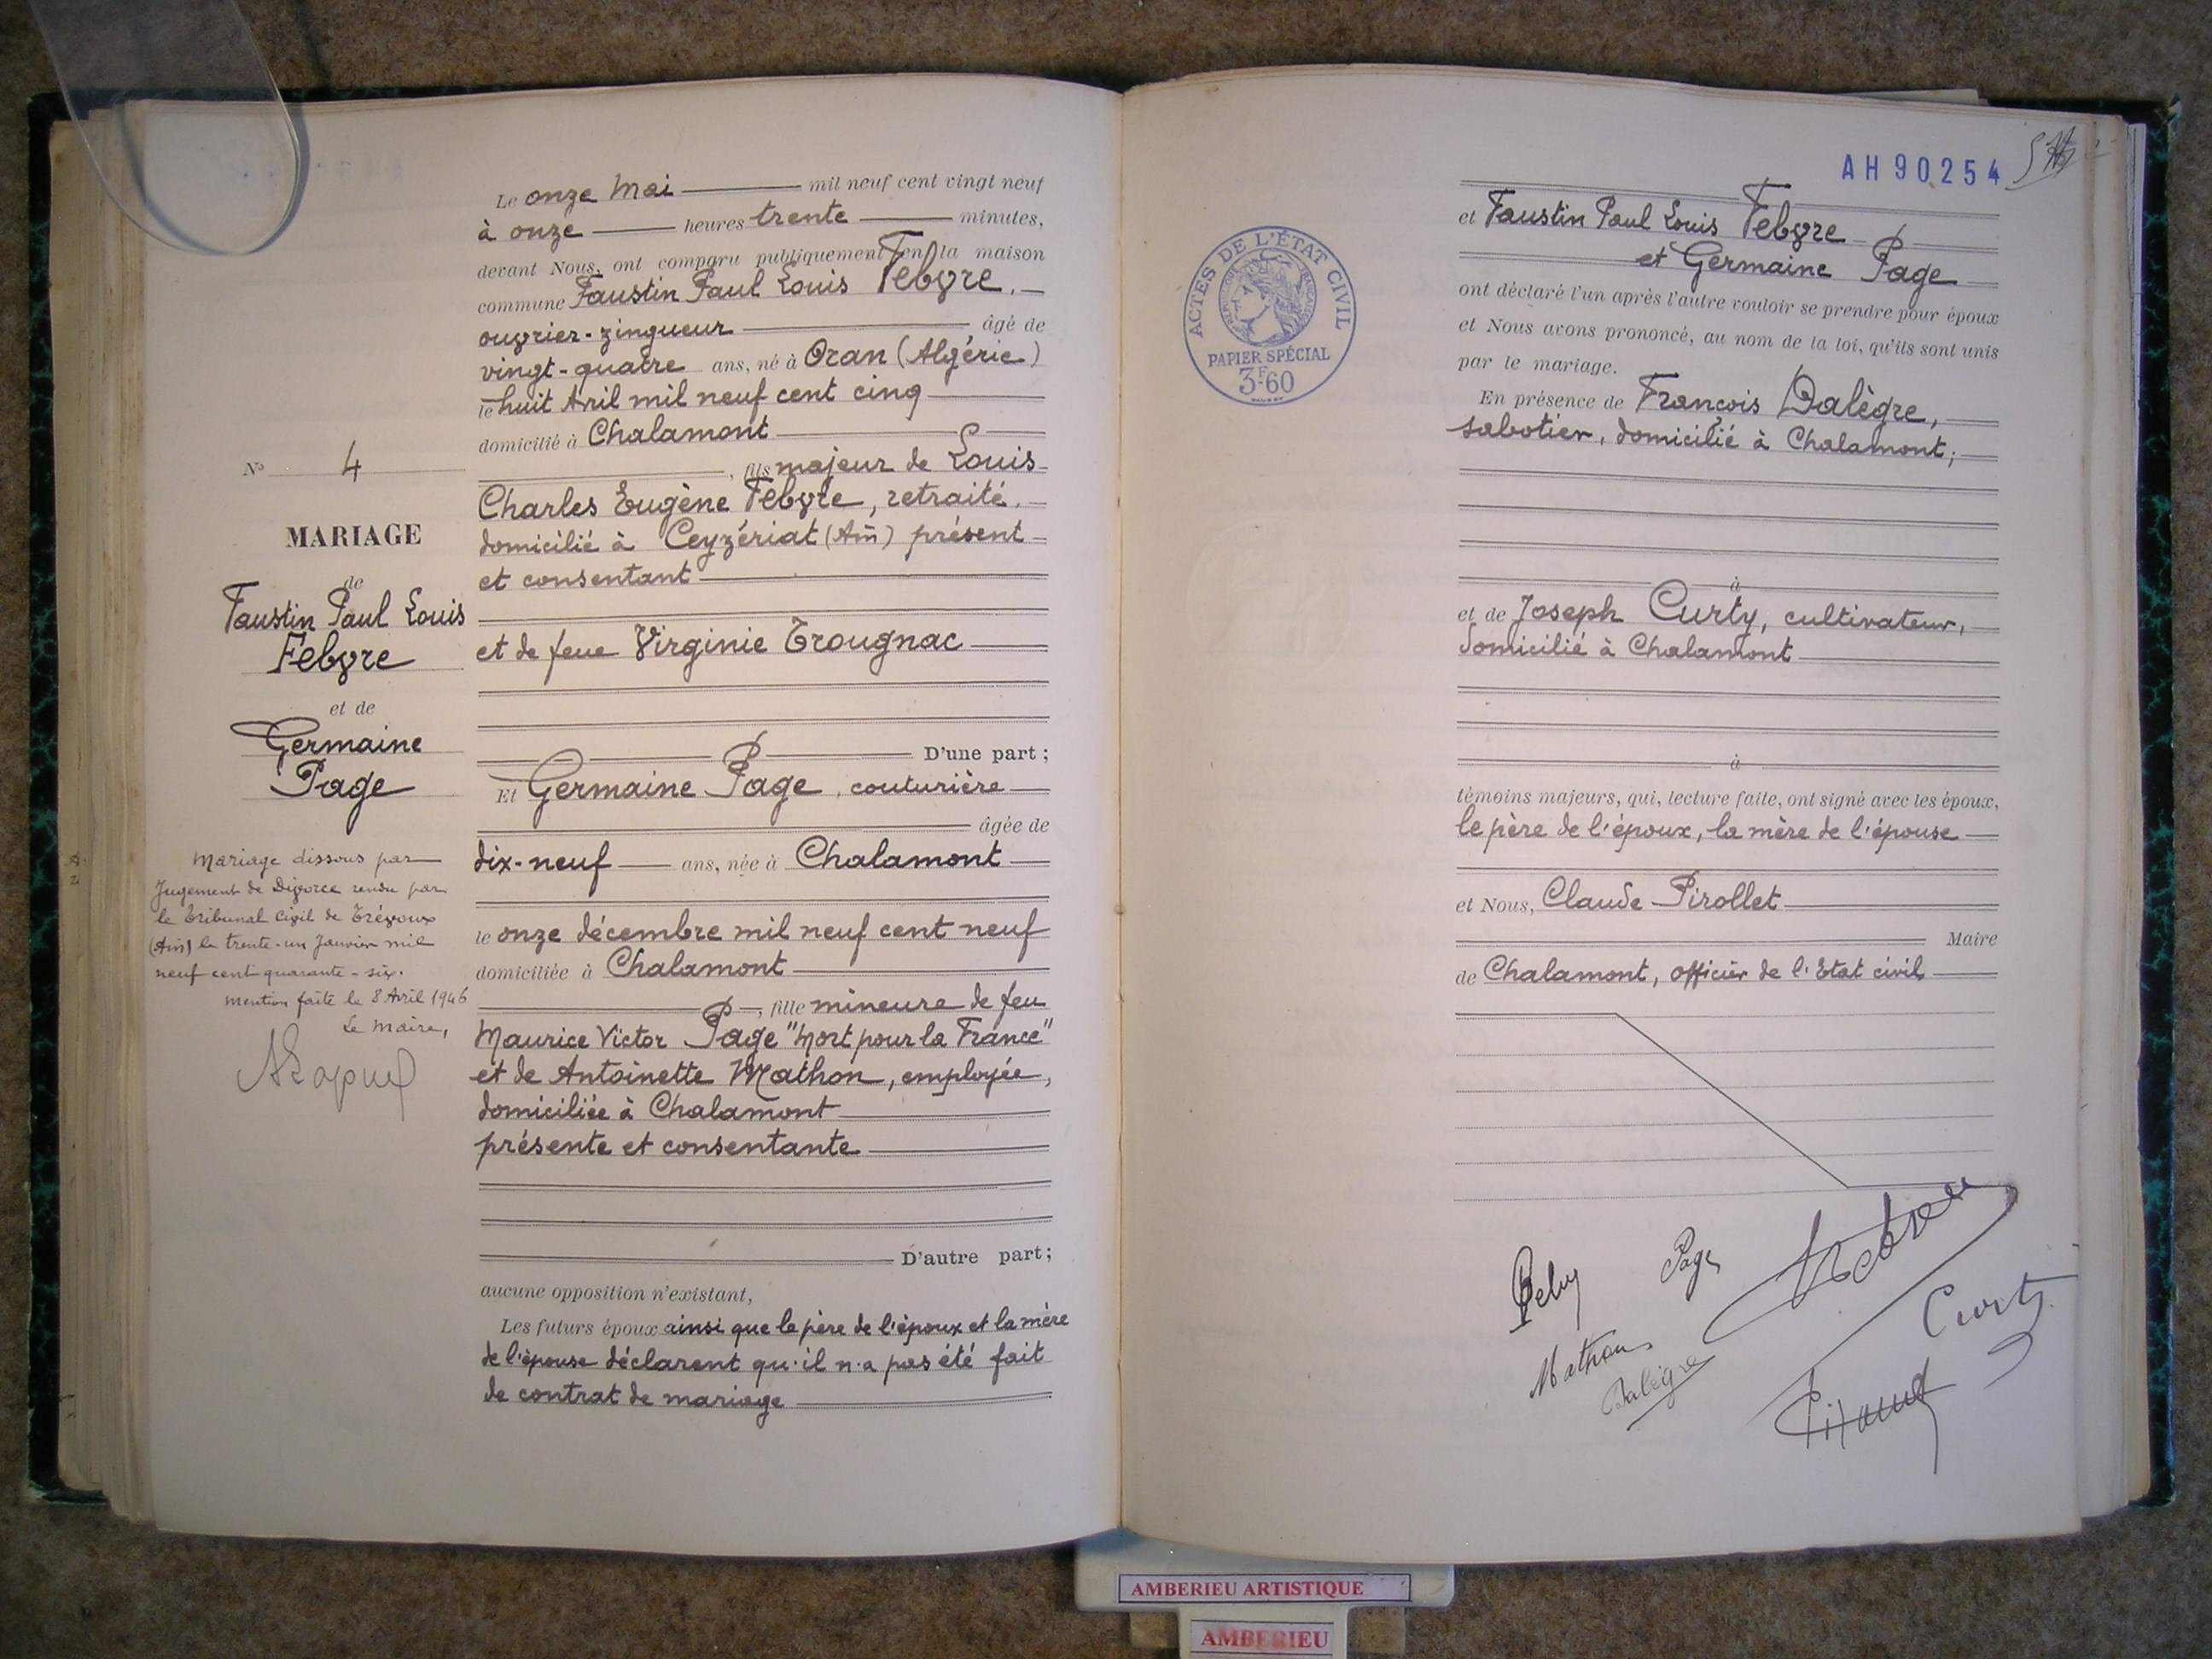 Le onze Mai mil neuf cent vingt neuf
à onze heures trente minutes,
devant Nous, ont comparu publiquement en la maison
commune Faustin Paul Louis Febvre,
ouvrier-zingueur âgé de
vingt-quatre ans, né à Oran (Algérie)
le huit Avril mil neuf cent cinq
domicilié à Chalamont
, fils majeur de Louis
Charles Eugène Febvre, retraité,
domicilié à Ceyzériat (Ain) présent
et consentant
et de feue Virginie Trougnac
D'une part ;
Et Germaine Page, couturière
âgée de
dix-neuf ans, née à Chalamont
le onze décembre mil neuf cent neuf
domiciliée à Chalamont
, fille mineure de feu
Maurice Victor Page "Mort pour la France"
et de Antoinette Mathon, employée,
domiciliée à Chalamont
présente et consentante
D'autre part;
aucune opposition n'existant,
Les futurs époux ainsi que le père de l'époux et la mère
de l'épouse déclarent qu'il n'a pas été fait
de contrat de mariage
N° 4
MARIAGE
de
Faustin Paul Louis
Febvre
et de
Germaine
Page
Mariage dissous par
Jugement de Divorce rendu par
le Tribunal Civil de Trévoux
(Ain) le trente-un Janvier mil
neuf cent quarante-six.
Mention faite le 8 Avril 1946
Le Maire,
AH90254
ACTES DE L'ÉTAT CIVIL
PAPIER SPÉCIAL
3F60
et Faustin Paul Louis Febvre
et Germaine Page
ont déclaré l'un après l'autre vouloir se prendre pour époux
et Nous avons prononcé, au nom de la loi, qu'ils sont unis
par le mariage.
En présence de François Dalègre,
sabotier, domicilié à Chalamont;
à
et de Joseph Curty, cultivateur,
domicilié à Chalamont
à
témoins majeurs, qui, lecture faite, ont signé avec les époux,
le père de l'époux, la mère de l'épouse
et Nous, Claude Pirollet
Maire
de Chalamont, officier de l'Etat civil
Page
Mathon
Dalègre
Curty
AMBERIEU ARTISTIQUE
AMBERIEU